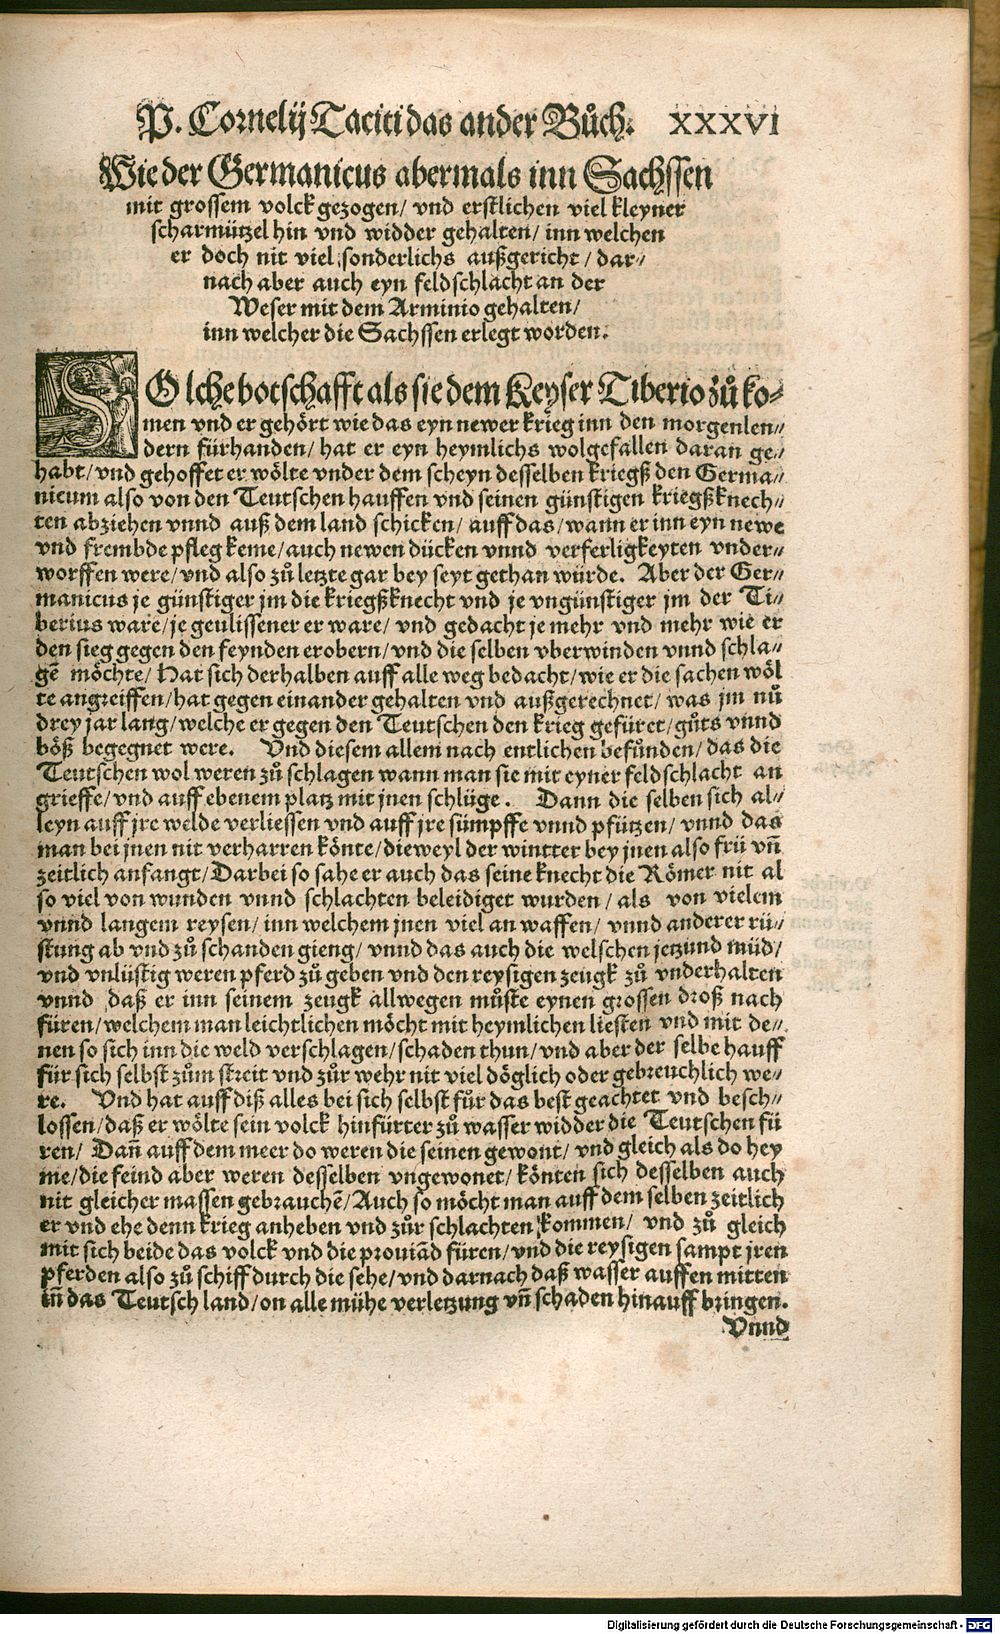 P. Cornelij Taciti das ander Bůch. XXXVI
Wie der Germanicus abermals inn Sachssen
mit grossem volck gezogen/ vnd erstlichen viel kleyner
scharmützel hin vnd widder gehalten/ inn welchen
er doch nit viel sonderlichs außgericht/ dar⸗
nach aber auch eyn feldschlacht an der
Weser mit dem Arminio gehalten/
inn welcher die Sachssen erlegt worden.
SOlche botschafft als sie dem Keyser Tiberio zů ko⸗
men vnd er gehört wie das eyn newer krieg inn den morgenlen⸗
dern fürhanden/ hat er eyn heymlichs wolgefallen daran ge⸗
habt/ vnd gehoffet er wölte vnder dem scheyn desselben kriegß den Germa⸗
nicum also von den Teutschen hauffen vnd seinen günstigen kriegßknech⸗
ten abziehen vnnd auß dem land schicken/ auff das/ wann er inn eyn newe
vnd frembde pfleg keme/ auch newen dücken vnnd verferligkeyten vnder⸗
worffen were/ vnd also zů letzte gar bey seyt gethan würde. Aber der Ger⸗
manicus je günstiger jm die kriegßknecht vnd je vngünstiger jm der Ti⸗
berius warē/ je geulissener er ware/ vnd gedacht je mehr vnd mehr wie er
den sieg gegen den feynden erobern/ vnd die selben vberwinden vnnd schla⸗
gē möchte/ Hat sich derhalben auff alle weg bedacht/ wie er die sachen wöl
te angreiffen/ hat gegen einander gehalten vnd außgerechnet/ was jm nů
drey jar lang/ welche er gegen den Teutschen den krieg gefüret/ gůts vnnd
böß begegnet were. Vnd diesem allem nach entlichen befunden/ das die
Teutschen wol weren zů schlagen wann man sie mit eyner feldschlacht an
grieffe/ vnd auff ebenem platz mit jnen schlüge. Dann die selben sich al⸗
leyn auff jre welde verliessen vnd auff jre sümpffe vnnd pfützen/ vnnd das
man bei jnen nit verharren könte/ dieweyl der wintter bey jnen also frü vn̄
zeitlich anfangt/ Darbei so sahe er auch das seine knecht die Römer nit al
so viel von wunden vnnd schlachten beleidiget wurden/ als von vielem
vnnd langem reysen/ inn welchem jnen viel an waffen/ vnnd anderer rü⸗
stung ab vnd zů schanden gieng/ vnnd das auch die welschen jetzund müd/
vnd vnlüstig weren pferd zů geben vnd den reysigen zeugk zů vnderhalten
vnnd daß er inn seinem zeugk allwegen můste eynen grossen droß nach
füren/ welchem man leichtlichen möcht mit heymlichen liesten vnd mit de⸗
nen so sich inn die weld verschlagen/ schaden thun/ vnd aber der selbe hauff
für sich selbst zům streit vnd zůr wehr nit viel döglich oder gebreuchlich we⸗
re. Vnd hat auff diß alles bei sich selbst für das best geachtet vnd besch⸗
lossen/ daß er wölte sein volck hinfürter zů wasser widder die Teutschen fü
ren/ Dan̄ auff dem meer do weren die seinen gewont/ vnd gleich als do hey
me/ die feind aber weren desselben vngewonet/ könten sich desselben auch
nit gleicher massen gebrauchē/ Auch so möcht man auff dem selben zeitlich
er vnd ehe denn krieg anheben vnd zůr schlachten kommen/ vnd zů gleich
mit sich beide das volck vnd die prouiād füren/ vnd die reysigen sampt jren
pferden also zů schiff durch die sehe/ vnd darnach daß wasser auffen mitten
in̄ das Teutsch land/ on alle mühe verletzung vn̄ schaden hinauff bringen.
Vnnd
Digitalisierung gefördert durch die Deutsche Forschungsgemeinschaft - DFG